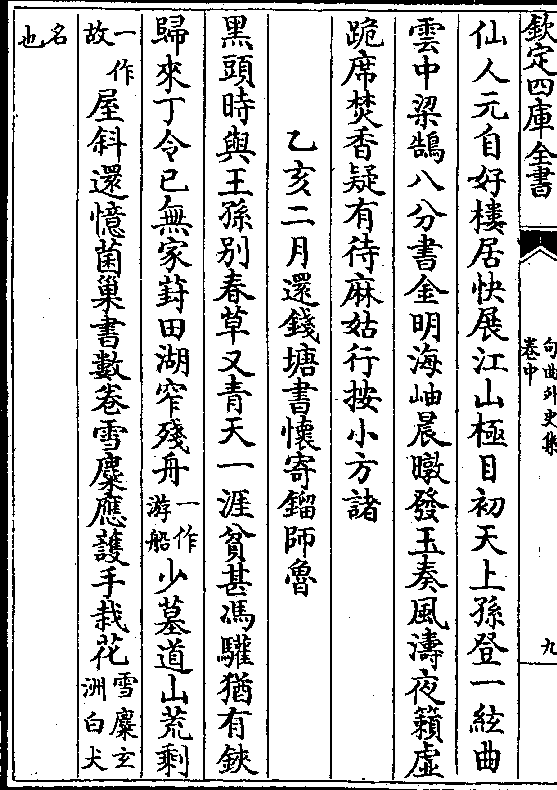 欽定四庫全書
句曲外史集
卷中
九
仙人元自好樓居快展江山極目初天上孫登一絃曲
雲中梁鵠八分書金明海岫晨暾發玉奏風濤夜籟虛
跪席焚香疑有待麻姑行按小方諸
乙亥二月還錢塘書懷寄鎦師魯
黑頭時與王孫別春草又青天一涯貧甚馮驩猶有鋏
歸來丁令已無家葑田湖窄殘舟一作游船少墓道山荒剩
一作故屋斜還憶菌巢書數卷雪麋應護手栽花雪麋玄洲白犬
名也